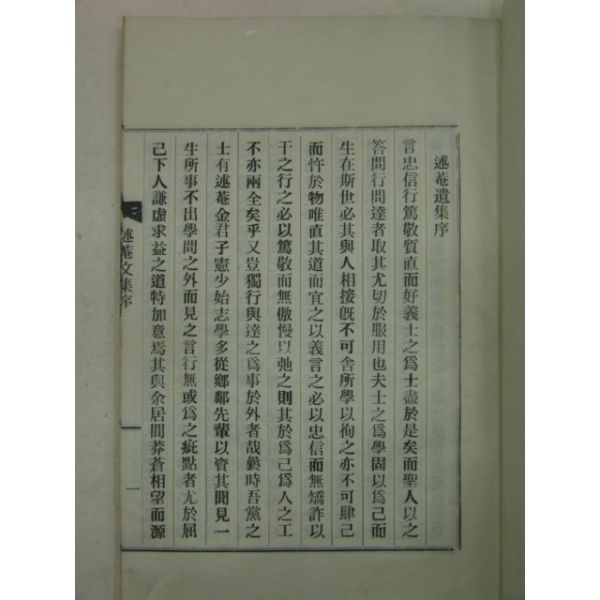 述菴遺集序
言忠信行篤敬質直而好義士之爲士盡於是矣而聖人以之
答問行問達者取其尤切於服用也夫士之爲學固以爲己而
生在斯世必其與人相接旣不可舍所學以徇之亦不可肆己
而忤於物唯直其道而宜之以義言之必以忠信而無矯詐以
干之行之必以篤敬而無傲慢以弛之則其於爲己爲人之工
不亦兩全矣乎又豈獨行與達之爲事於外者哉曩時吾黨之
士有述菴金君子憲少始志學多從鄕鄰先輩以資其聞見一
生所事不出學問之外而見之言行無或爲之疵點者尤於屈
己下人謙虛求益之道特加意焉其與余居間莽蒼相望而源
述菴文集序
一